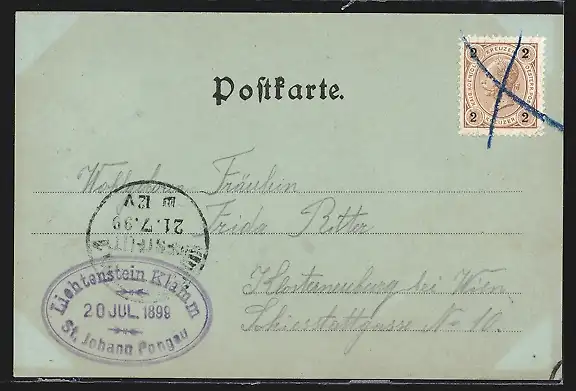 2 KREUZER 2
2 KREUZER 2
Postkarte.
Wohlgeboren Fräulein
Frida Ritter
Klosterneuburg bei Wien
Schiesstattgasse No 10.
12V
21.7.99
Liechtenstein Klamm
20 JUL. 1899
St. Johann Pongau